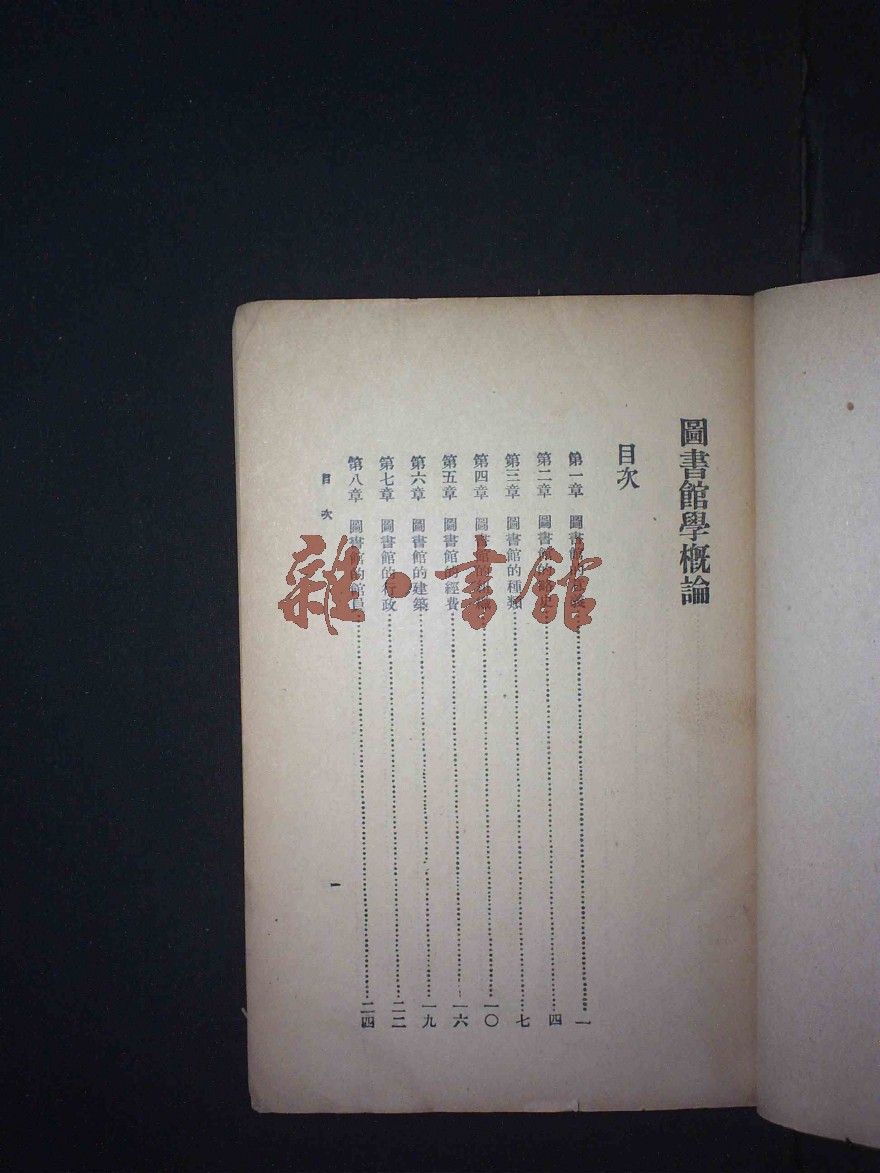 圖書館學概論
目次
第一章 圖書館的意義……一
第二章 圖書館的略史……四
第三章 圖書館的種類……七
第四章 圖書館的……一〇
第五章 圖書館的經費……一六
第六章 圖書館的建築……一九
第七章 圖書館的行政……二二
第八章 圖書館的館員……二四
目次
一
雜·書館